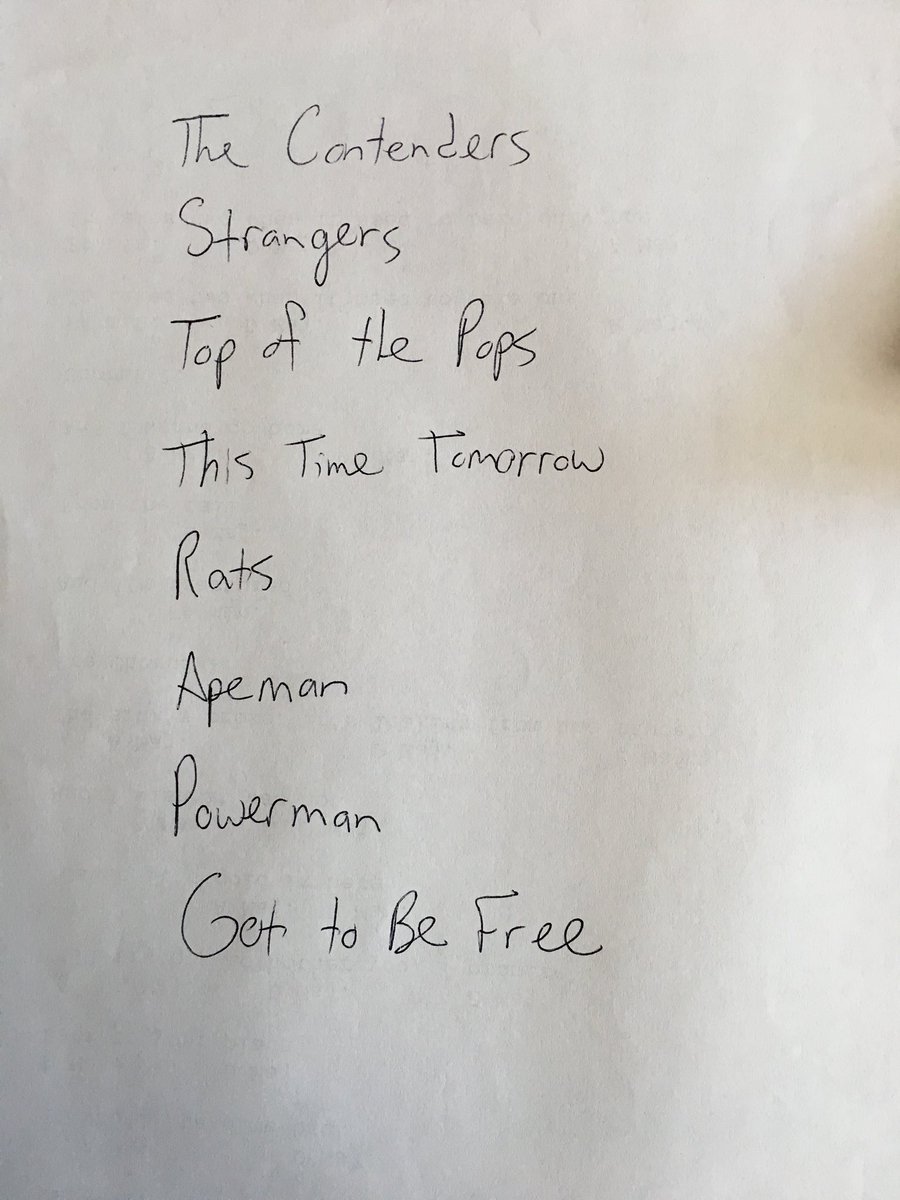 The Contenders
Strangers
Top of the Pops
This Time Tomorrow
Rats
Apeman
Powerman
Got to Be Free